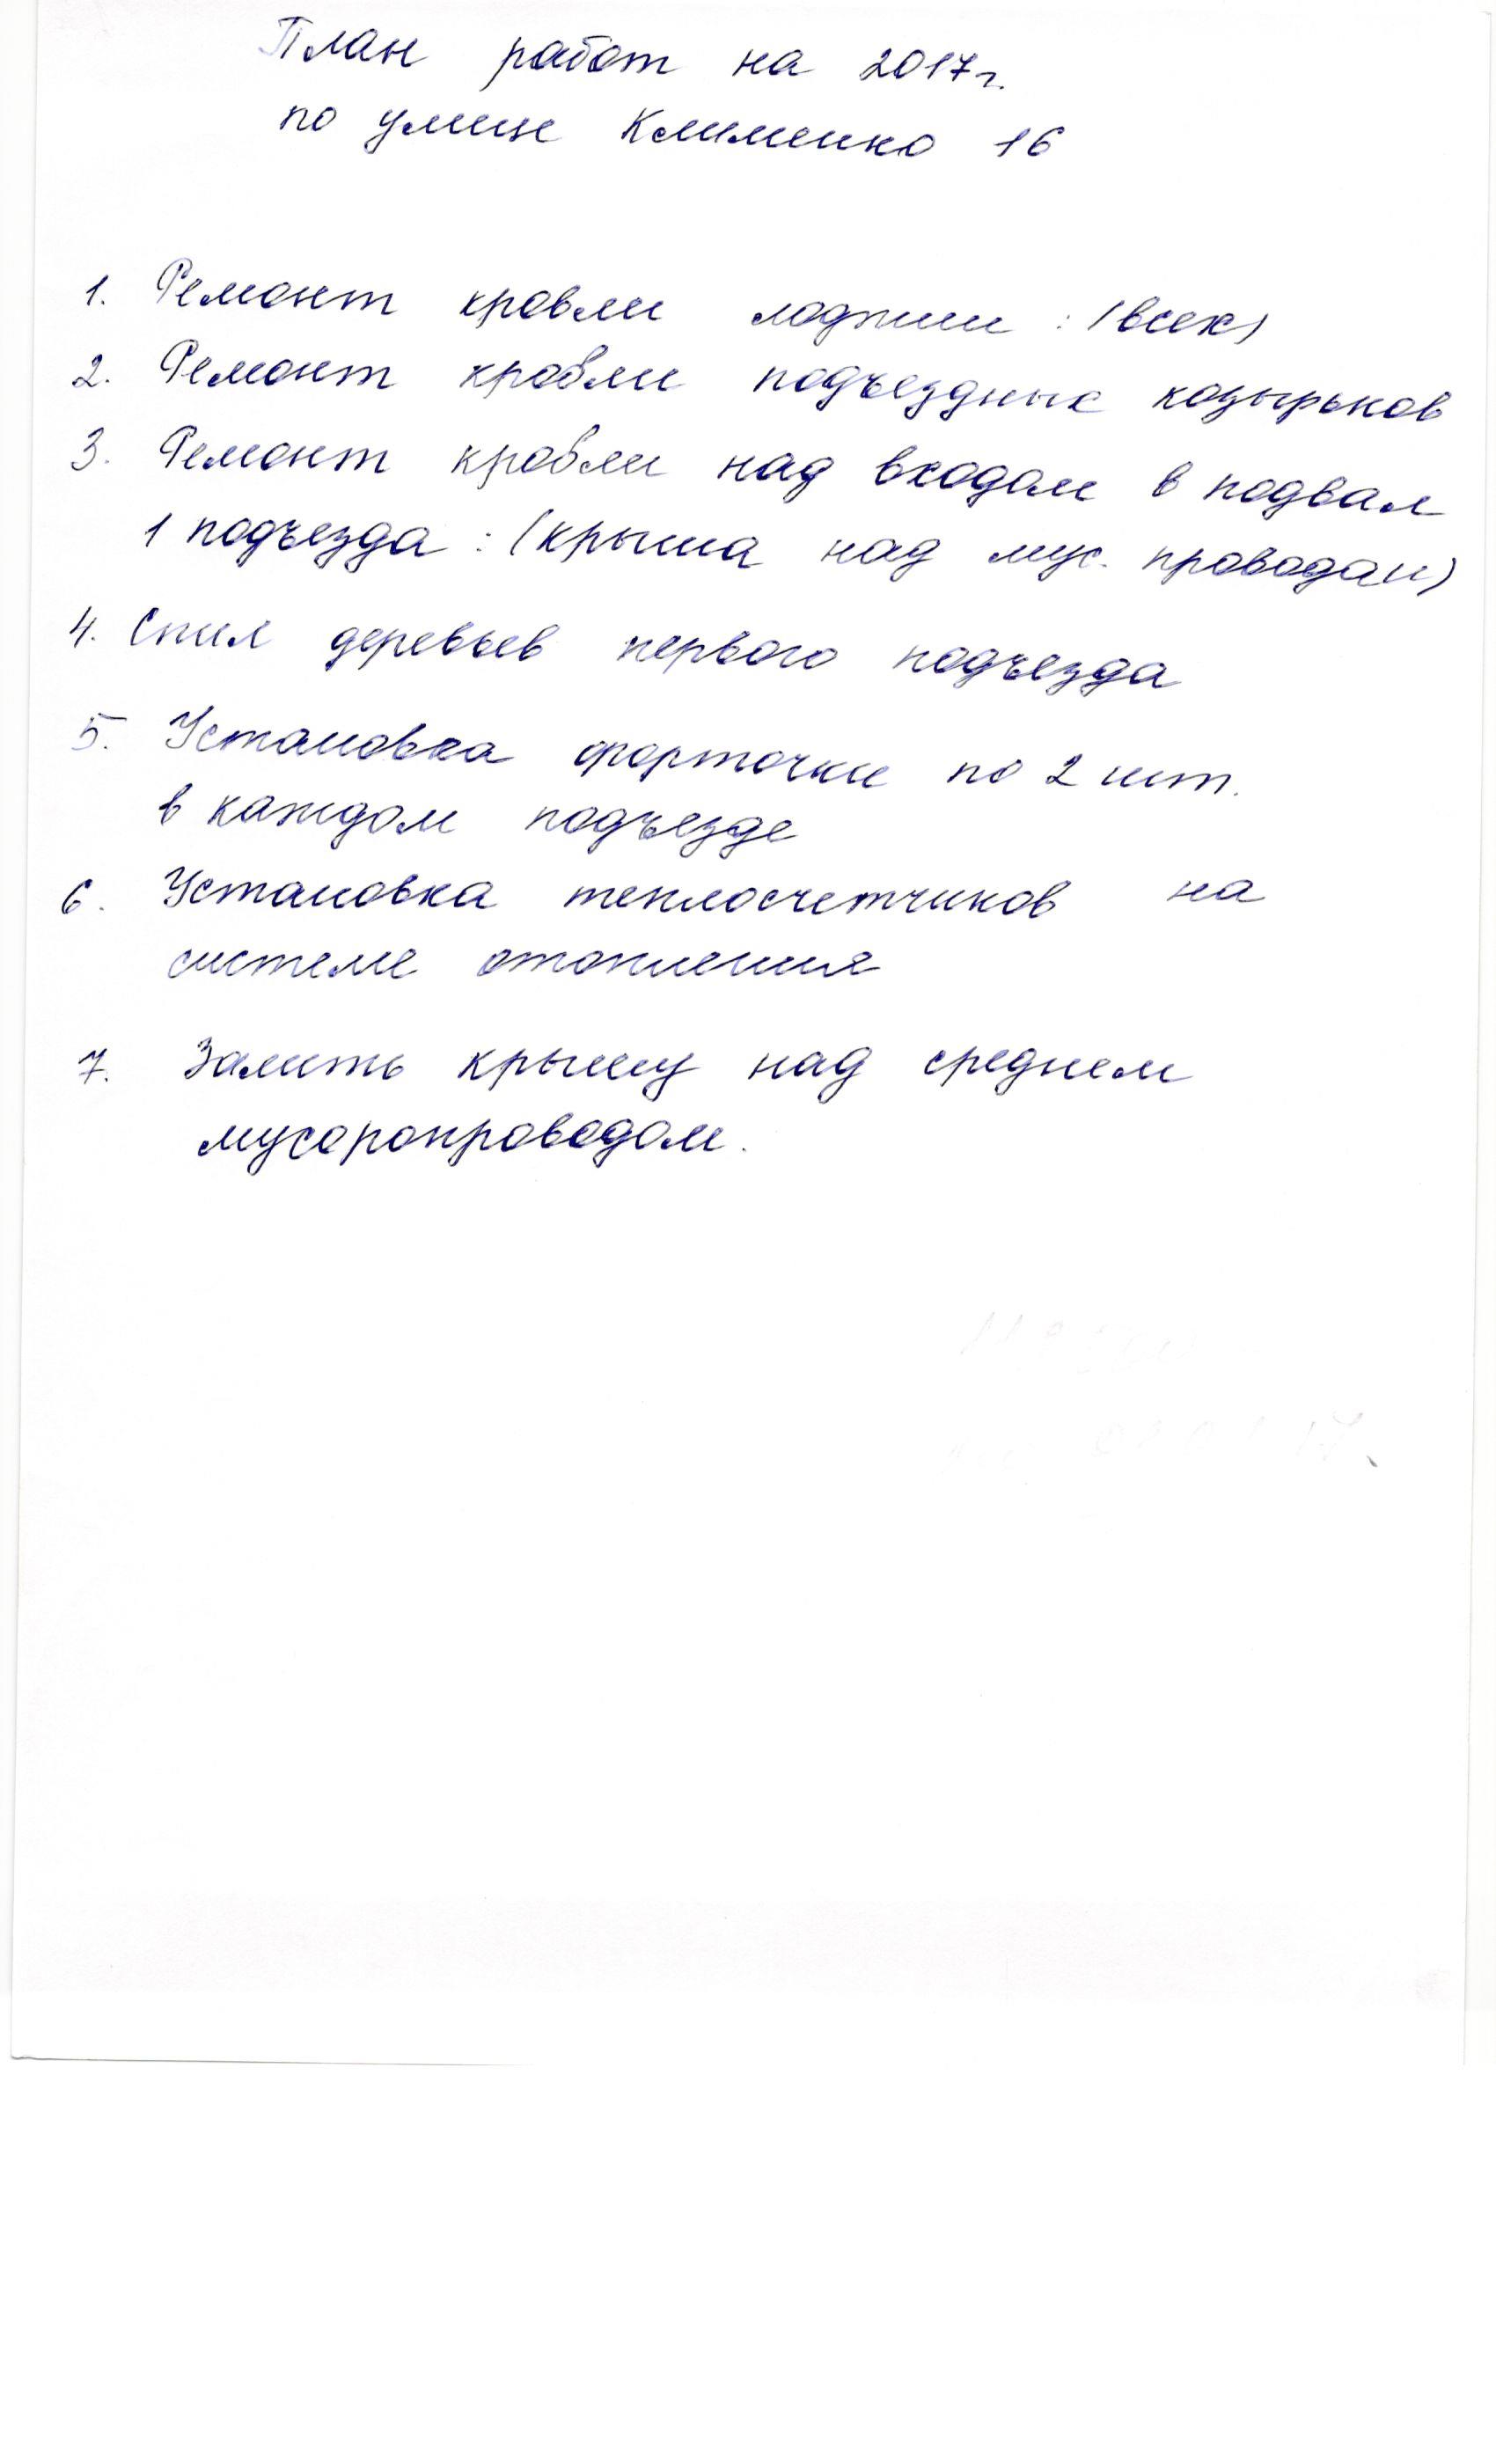 План работ на 2017г.
по улице Клименко 16
1. Ремонт кровли лоджии : (всех)
2. Ремонт кровли подъездных козырьков
3. Ремонт кровли над входом в подвал
1 подъезда : (крыша над мус. проводом)
4. Спил деревьев первого подъезда
5. Установка форточки по 2 шт.
в каждом подъезде
6. Установка теплосчетчиков на
системе отопления
7. Залить крышу над средним
мусоропроводом.